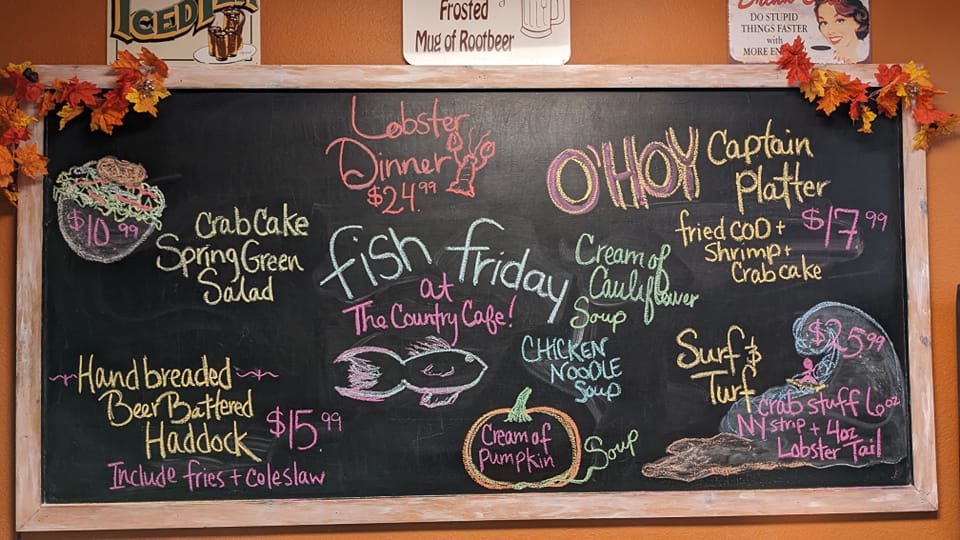 ICED TEA
Frosted
Mug of Rootbeer
DO STUPID
THINGS FASTER
with
MORE
Lobster
Dinner
$24.99
O'HOY
Captain
Platter
$17.99
fried COD +
Shrimp +
Crab cake
$10.99
Crab Cake
Spring Green
Salad
fish friday
at
The Country Cafe!
Cream of
Cauliflower
Soup
CHICKEN
NOODLE
Soup
Surf &
Turf
$25.99
Crab stuff 6oz
NY strip + 4oz
Lobster Tail
Hand breaded
Beer Battered
Haddock
$15.99
Include fries + coleslaw
Cream of
Pumpkin
Soup